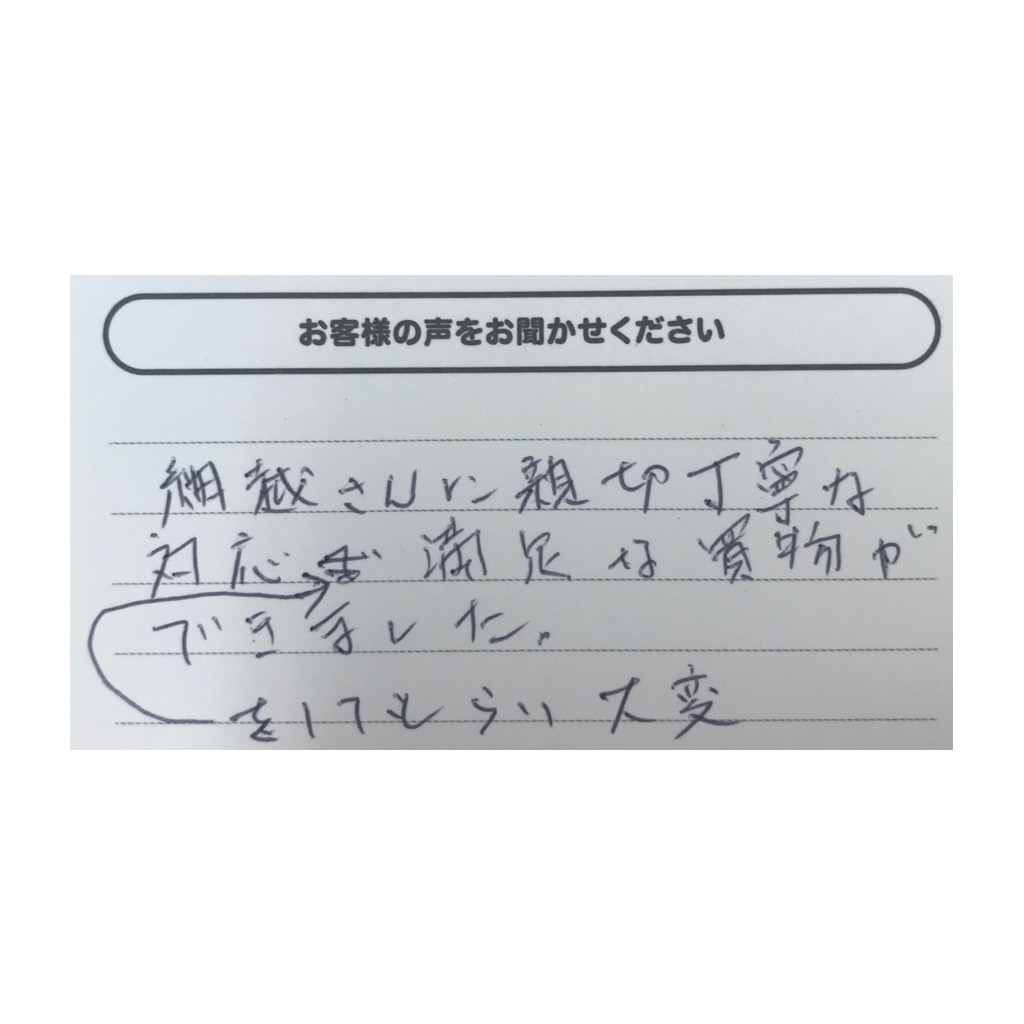 お客様の声をお聞かせください
細越さんに親切丁寧な
対応 満足な買物が
できました。
をしてもらい大変